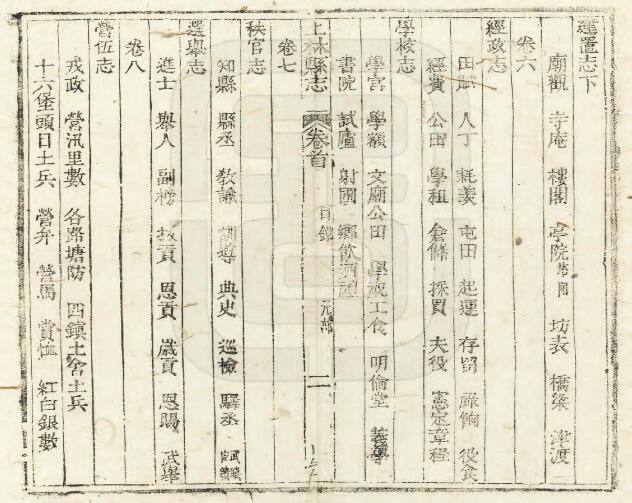 建置志下
廟觀 寺庵 樓閣 亭院 坊表 橋梁 津渡
卷六
經政志
田賦 人丁 耗羨 屯田 起運 存留 祿餉 役食
經費 公田 學租 倉儲 採買 夫役 憲定章程
學校志
學宮 學額 文廟公田 學祝工食 明倫堂 義學
書院 試廬 射圃 鄉飲酒禮
上林縣志 卷首 目錄 二
卷七
秩官志
知縣 縣丞 教諭 訓導 典史 巡檢 驛丞
選舉志
進士 舉人 副榜 拔貢 恩貢 歲貢 恩賜 武舉
卷八
營伍志
戎政 營汛里數 各路塘防 四鎮土舍土兵
十六堡頭目土兵 營弁 營馬 賞恤 紅白銀數